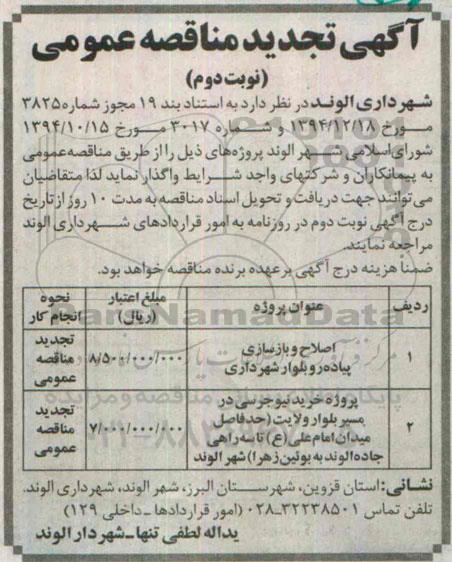 آگهی تجدید مناقصه عمومی
(نوبت دوم)
شهرداری الوند در نظر دارد به استناد بند ۱۹ مجوز شماره ۳۸۲۵
مورخ ۱۳۹۴/۱۲/۱۸ و شماره ۳۰۱۷ مورخ ۱۳۹۴/۱۰/۱۵
شورای اسلامی شهر الوند پروژه‌های ذیل را از طریق مناقصه عمومی
به پیمانکاران و شرکتهای واجد شرایط واگذار نماید لذا متقاضیان
می‌توانند جهت دریافت و تحویل اسناد مناقصه به مدت ۱۰ روز از تاریخ
درج آگهی نوبت دوم در روزنامه به امور قراردادهای شهرداری الوند
مراجعه نمایند.
ضمناً هزینه درج آگهی بر عهده برنده مناقصه خواهد بود.
ردیف عنوان پروژه مبلغ اعتبار (ریال) نحوه انجام کار
۱ اصلاح و بازسازی پیاده‌رو بلوار شهرداری ۸/۵۰۰/۰۰۰/۰۰۰ تجدید مناقصه عمومی
۲ پروژه خرید نیوجرسی در مسیر بلوار ولایت (حدفاصل میدان امام علی (ع) تا سه راهی جاده الوند به بوئین زهرا) شهر الوند ۷/۰۰۰/۰۰۰/۰۰۰ تجدید مناقصه عمومی
نشانی: استان قزوین، شهرستان البرز، شهر الوند، شهرداری الوند.
تلفن تماس ۳۲۲۳۸۵۰۱-۰۲۸ (امور قراردادها - داخلی ۱۲۹)
یداله لطفی تنها - شهردار الوند
ParsNamadData